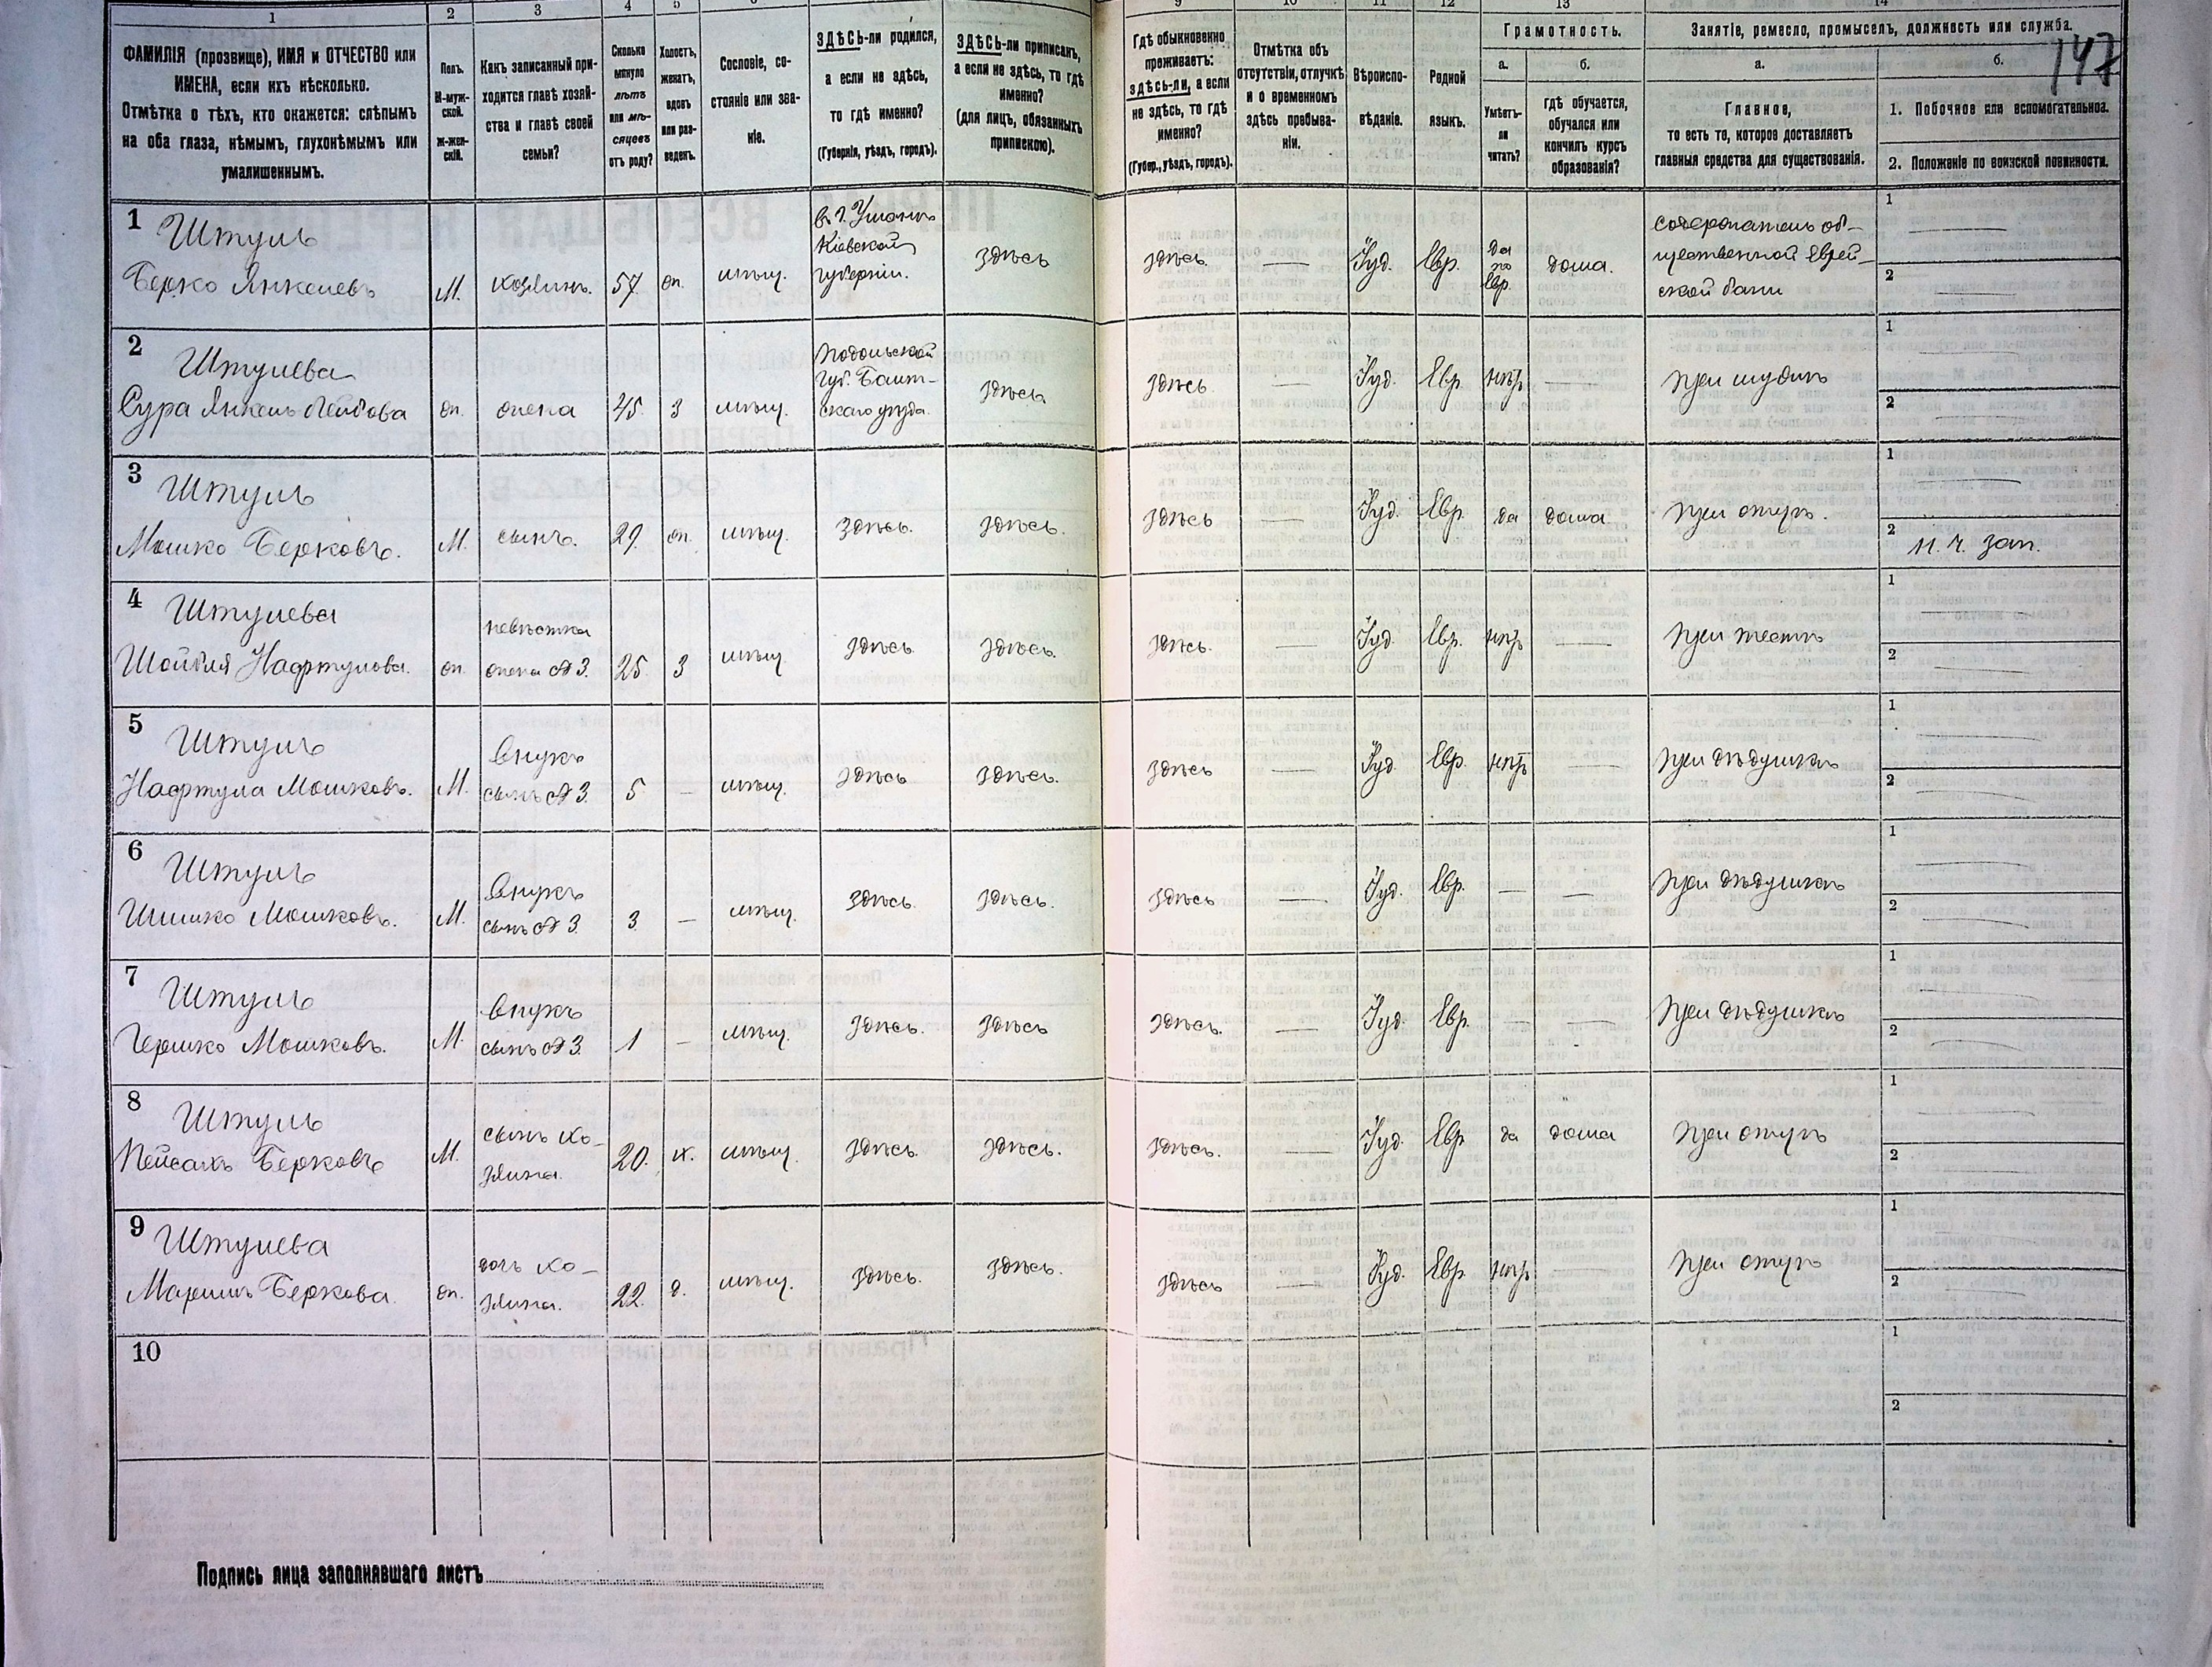 1 2 3 4 5 9 10 11 12 13 14
147
ФАМИЛІЯ (прозвище), ИМЯ и ОТЧЕСТВО или
ИМЕНА, если ихъ нѣсколько.
Отмѣтка о тѣхъ, кто окажется: слѣпымъ
на оба глаза, нѣмымъ, глухонѣмымъ или
умалишеннымъ.
Полъ.
М-муж-
ской.
ж-жен-
скій.
Какъ записанный при-
ходится главѣ хозяй-
ства и главѣ своей
семьи?
Сколько
минуло
лѣтъ
или мѣ-
сяцевъ
отъ роду?
Холостъ,
женатъ,
вдовъ
или раз-
веденъ.
Сословіе, со-
стояніе или зва-
ніе.
ЗДѢСЬ-ли родился,
а если не здѣсь,
то гдѣ именно?
(Губернія, уѣздъ, городъ).
ЗДѢСЬ-ли приписанъ,
а если не здѣсь, то гдѣ
именно?
(для лицъ, обязанныхъ
припискою).
Гдѣ обыкновенно
проживаетъ:
ЗДѢСЬ-ли, а если
не здѣсь, то гдѣ
именно?
(Губер., уѣздъ, городъ).
Отмѣтка объ
отсутствіи, отлучкѣ
и о временномъ
здѣсь пребыва-
ніи.
Вѣроиспо-
вѣданіе.
Родной
языкъ.
Грамотность.
а.
Умѣетъ-
ли
читать?
б.
гдѣ обучается,
обучался или
кончилъ курсъ
образованія?
Занятіе, ремесло, промыселъ, должность или служба.
а.
Главное,
то есть то, которое доставляетъ
главныя средства для существованія.
б.
1. Побочное или вспомогательное.
2. Положеніе по воинской повинности.
1 Штуль
Берко Янкелевъ
М.
хозяинъ.
57
ж.
мѣщ.
въ г. Умань
Кіевской
губерніи.
здѣсь
здѣсь
—
Іуд.
Евр.
да
по
Евр.
дома.
содержатель об-
щественной Еврей-
ской бани
1 —
2 —
2 Штулева
Сура Янкель Лейбова
ж.
жена
45
з
мѣщ.
Подольской
Губ. Балт-
скаго уѣзда
здѣсь
здѣсь
—
Іуд.
Евр.
нѣтъ
—
при мужѣ
1 —
2 —
3 Штуль
Мошко Берковъ.
М.
сынъ.
29
ж.
мѣщ.
здѣсь.
здѣсь.
здѣсь
—
Іуд.
Евр.
да
дома
при отцѣ.
1
2 н. ч. зап.
4 Штулева
Нафтулова.
ж.
невѣстка
жена № 3.
25
з
мѣщ.
здѣсь
здѣсь.
здѣсь.
—
Іуд.
Евр.
нѣтъ
—
при тестѣ
1 —
2 —
5 Штуль
Нафтула Мошковъ.
М.
внукъ
сынъ № 3.
5
—
мѣщ.
здѣсь
здѣсь.
здѣсь
—
Іуд.
Евр.
нѣтъ
—
при дѣдушкѣ
1 —
2 —
6 Штуль
Шишко Мошковъ.
М.
внукъ
сынъ № 3.
3
—
мѣщ.
здѣсь.
здѣсь.
здѣсь
—
Іуд.
Евр.
—
—
при дѣдушкѣ
1 —
2 —
7 Штуль
Гершко Мошковъ.
М.
внукъ
сынъ № 3.
1
—
мѣщ.
здѣсь.
здѣсь
здѣсь.
—
Іуд.
Евр.
—
—
при дѣдушкѣ
1 —
2 —
8 Штуль
Пейсахъ Берковъ
М.
сынъ хо-
зяина.
20.
х.
мѣщ.
здѣсь.
здѣсь.
здѣсь.
—
Іуд.
Евр
да
дома
при отцѣ
1 —
2 —
9 Штулева
Берковa.
ж.
дочь хо-
зяина.
22.
д.
мѣщ.
здѣсь.
здѣсь.
здѣсь
—
Іуд.
Евр.
нѣтъ
—
при отцѣ
1 —
2 —
10
1
2
Подпись лица заполнявшаго листъ